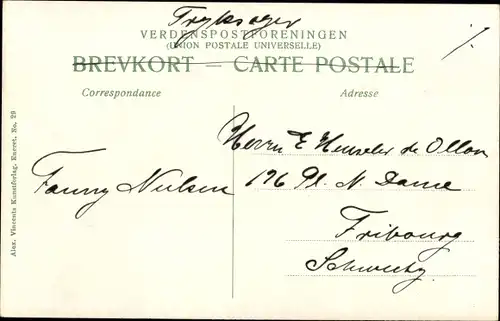 Tryksager
VERDENSPOSTFORENINGEN
(UNION POSTALE UNIVERSELLE)
BREVKORT — CARTE POSTALE
Correspondance
Adresse
Herrn E Heuseler de Ollon
Fanny Nielsen
176 Pl. N. Dame
Fribourg
Schweitz
Alex. Vincents Kunstforlag. Eneret. No. 29